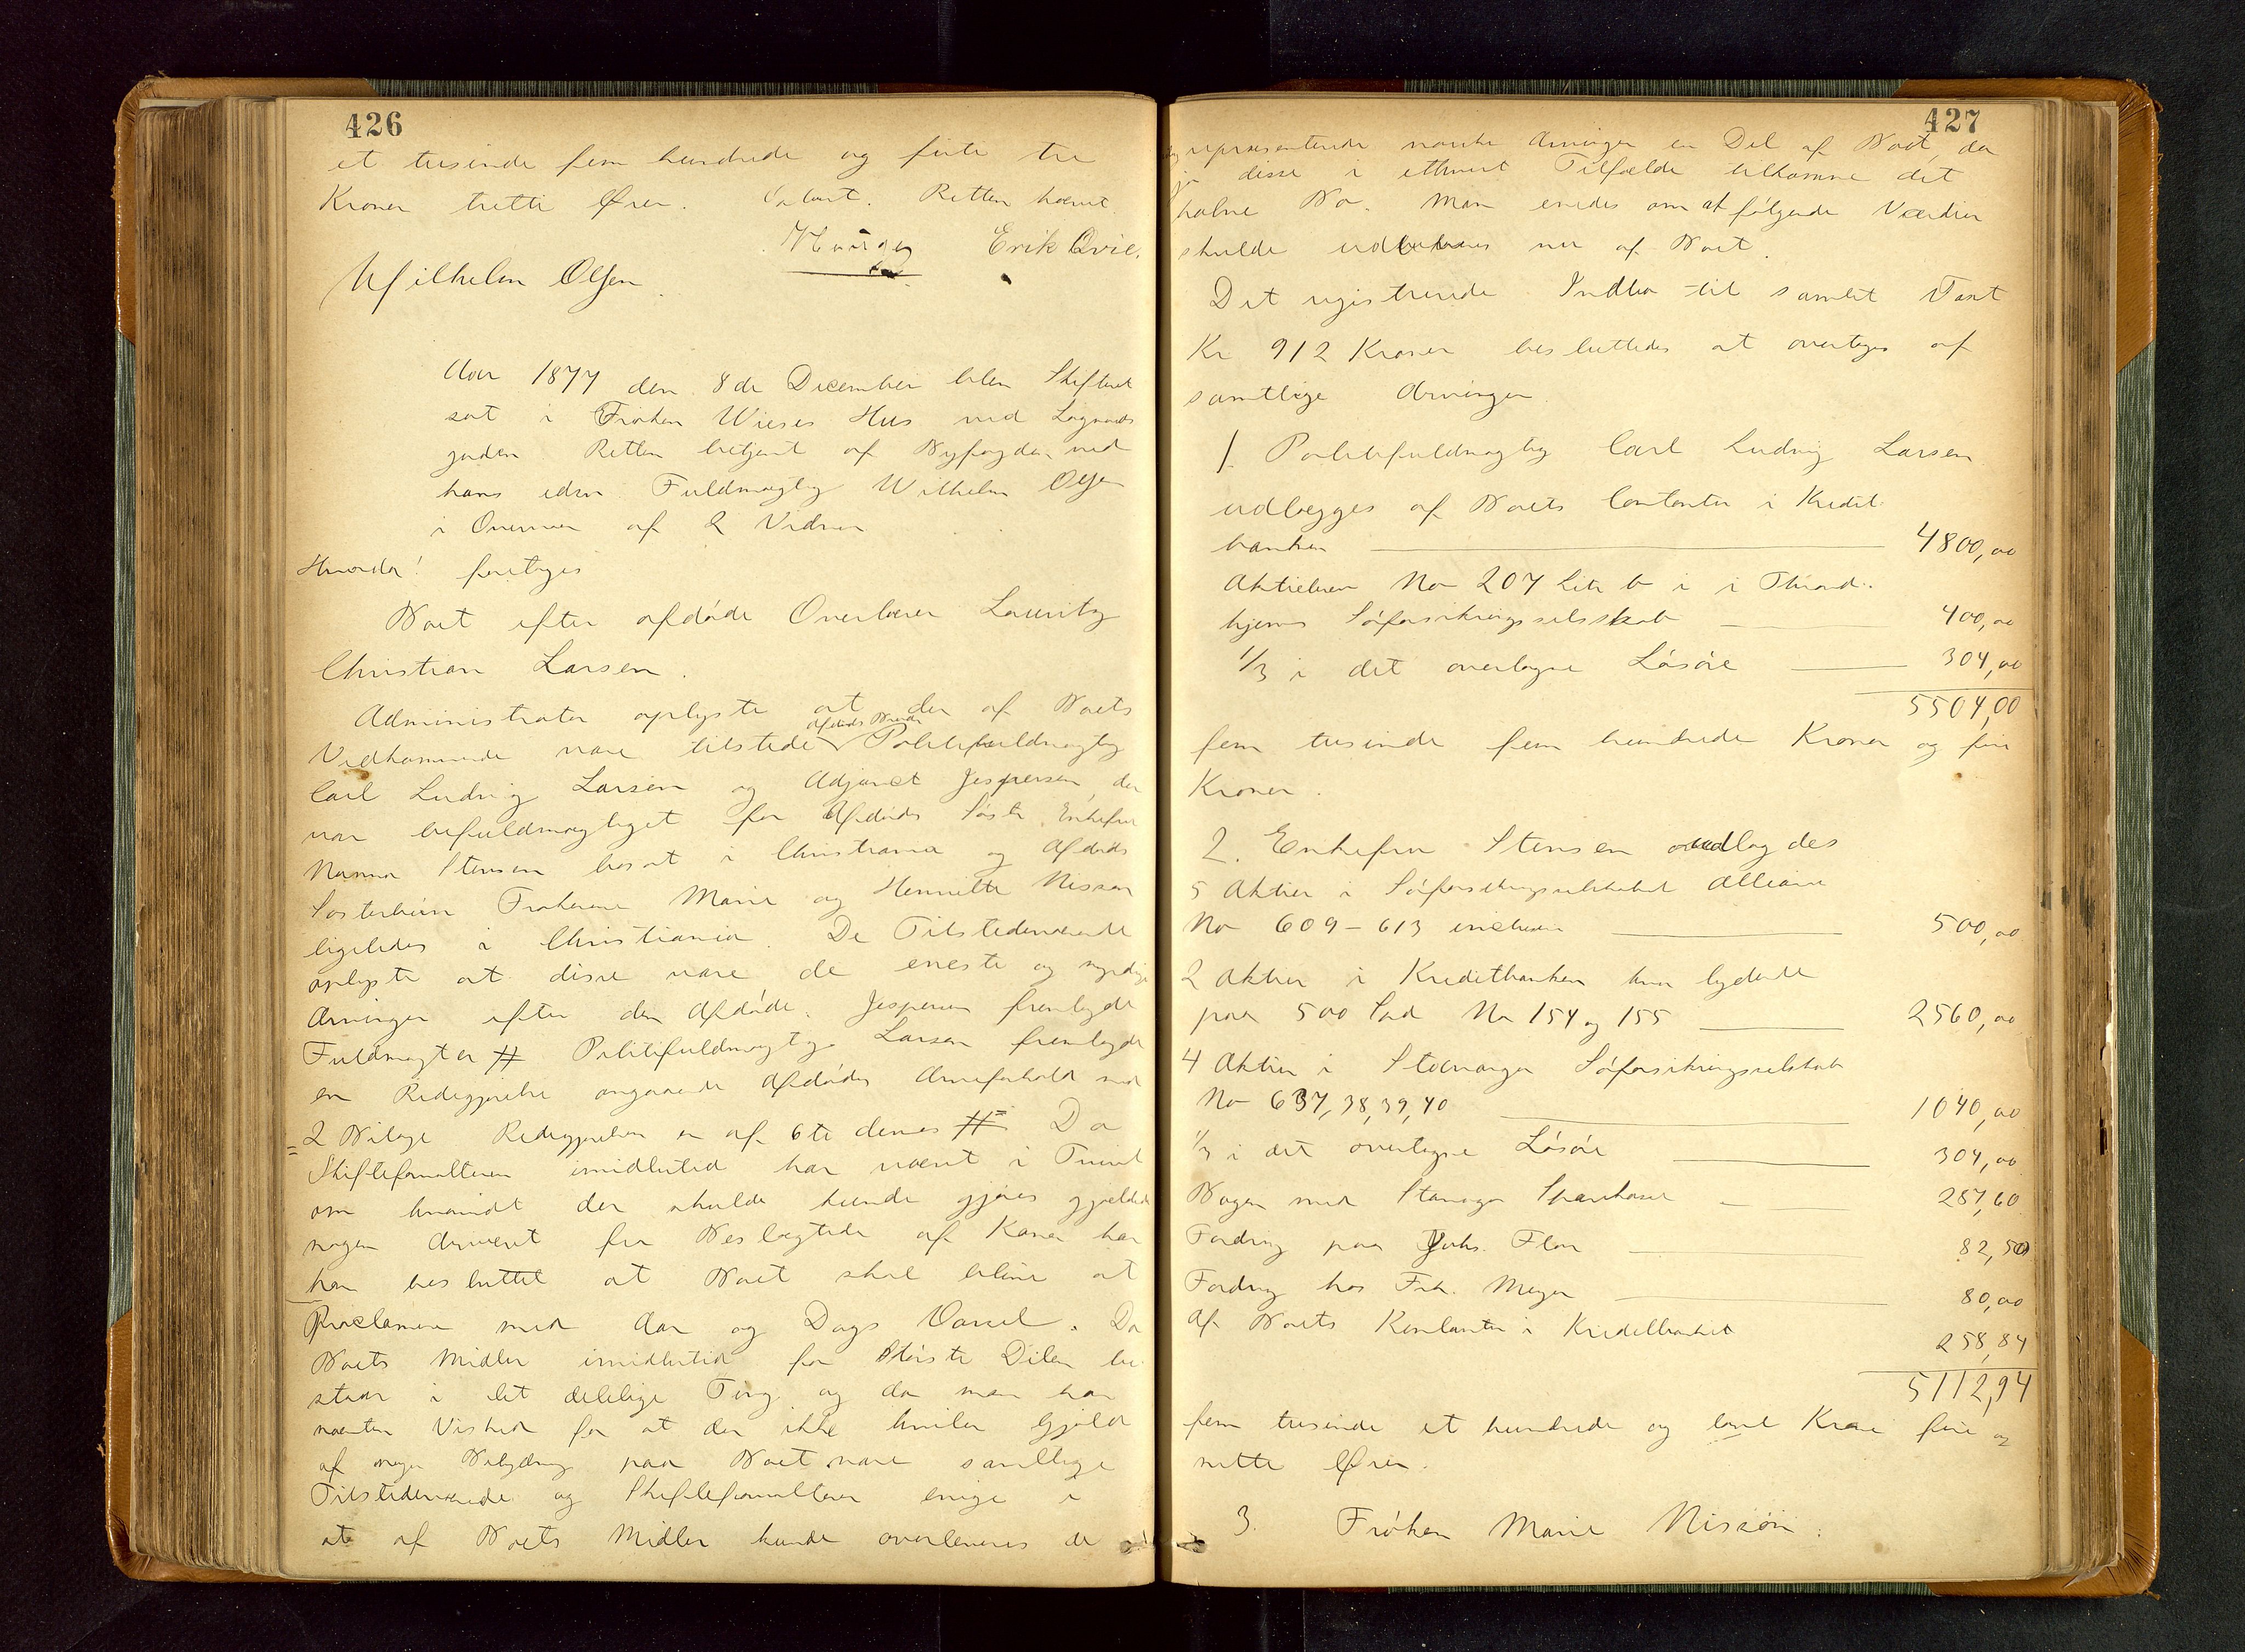 426
et tusinde fem hundrede og firti tre
Kroner tretti Ører. Sluttet. Retten hævet.
Erik Qvie.
Wilhelm Olsen.
Aar 1877 den 8de December blev Skifteret
sat i Frøken Wieses Hus ved Løgnaards
gaden Retten betjent af Byfogden ved
hans edsv. Fuldmægtig Wilhelm Olsen
i Overvær af 2 Vidner
Hvorda! foretoges
Boet efter afdøde Overlærer Lauritz
Christian Larsen.
Administrator oplyste at der af Boets
Vedkommende vare tilstede afdødes Broder Politifuldmægtig
Carl Ludvig Larsen og Adjunct Jespersen, der
var befuldmægtiget for Afdødes Søster Enkefru
Nanna Stensen bosat i Christiania og Afdødes
Søsterbørn Frøknerne Marie og Henriette Nissen
ligeledes i Christiania. De Tilstedeværende
oplyste at disse vare de eneste og myndige
Arvinger efter den Afdøde. Jespersen fremlagde
Fuldmagter # Politifuldmægtig Larsen fremlagde
en Redegjørelse angaaende Afdødes Arveforhold med
2 Bilage Redegjørelsen er af 6te dennes # Da
Skifteforvalteren imidlertid har været i Tvivl
om hvorvidt der skulde kunde gjøres gjældende
nogen Arveret fra Beslægtede af Konen har
han besluttet at Boet skal blive at
Proclamere med Aar og Dags Varsel. Da
Boets Midler imidlertid for Største Delen be
staar i let delelige Ting og da man har
næsten Vished for at der ikke hviler Gjæld
af nogen Betydning paa Boet vare samtlige
Tilstedeværende og Skifteforvalteren enige i
at af Boets Midler kunde overleveres de
427
repræsenterede norske Arvinger en Del af Boet, da
jo disse i ethvert Tilfælde tilkomme det
halve Bo. Man enedes om at følgende Værdier
skulde udleveres nu af Boet.
Det registrerede Indbo til samlet Taxt
Kr 912 Kroner besluttedes at overtages af
samtlige Arvinger.
1. Politifuldmægtig Carl Ludvig Larsen
udlægges af Boets Contanter i Kredit
banken 4800,00
Aktiebrev No 207 Litr b i i Thrond
hjems Söforsikringsselskab 400,00
1/3 i det overtagne Løsøre 304,00
5504,00
fem tusinde fem hundrede Kroner og fire
Kroner.
2. Enkefru Stensen udlagdes
5 Aktier i Söforsikringsselskabet Alliance
No 609 – 613 inclusive 500,00
2 Aktier i Kreditbanken hver lydende
paa 500 Spd No 154 og 155 2560,00
4 Aktier i Stavanger Söforsikringsselskab
No 637, 38, 39, 40 1040,00
1/3 i det overtagne Løsøre 304,00
Bogen med Stavanger Sparekasse 287,60
Fordring paa Johs. Flor 82,50
Fordring hos Frk. Meyer 80,00
Af Boets Kontanter i Kreditbanken 258,84
5112,94
fem tusinde et hundrede og tolv Kroner fire og
nitti Ører.
3. Frøken Marie Nissen.